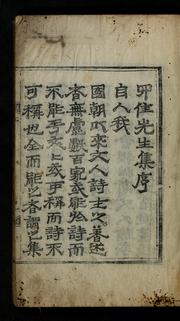 卯住先生集序
自人我
國朝以來文人詩士之著述
者無慮數百家或能於詩而
不能于文文或可稱而詩不
可稱也全而能之者謂之集